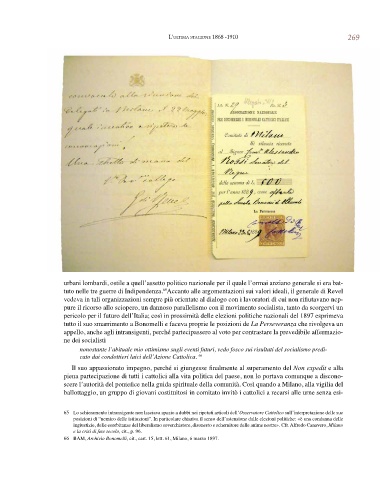 L'ULTIMA STAGIONE 1868 -1910
269
ASSOCIAZIONE NAZIONALE
PER SOCCORRERE I MISSIONARI CATTOLICI ITALIANI
Comitato di Milano
Si rilascia ricevuta
al Signor Alessandro
Rossi Senatore del
Regno
della somma di L. 500
per l'anno 1889 come offerta
Milano
urbani lombardi, ostile a quell'assetto politico nazionale per il quale l'ormai anziano generale si era bat-
tuto nelle tre guerre di Indipendenza.65Accanto alle argomentazioni sui valori ideali, il generale di Revel
vedeva in tali organizzazioni sempre più orientate al dialogo con i lavoratori di cui non rifiutavano nep-
pure il ricorso allo sciopero, un dannoso parallelismo con il movimento socialista, tanto da scorgervi un
pericolo per il futuro dell'Italia; così in prossimità delle elezioni politiche nazionali del 1897 esprimeva
tutto il suo smarrimento a Bonomelli e faceva proprie le posizioni de La Perseveranza che rivolgeva un
appello, anche agli intransigenti, perché partecipassero al voto per contrastare la prevedibile affermazio-
ne dei socialisti
nonostante l'abituale mio ottimismo sugli eventi futuri, vedo fosco sui risultati del socialismo predi-
cato dai condottieri laici dell'Azione Cattolica. 66
Il suo appassionato impegno, perché si giungesse finalmente al superamento del Non expedit e alla
piena partecipazione di tutti i cattolici alla vita politica del paese, non lo portava comunque a discono-
scere l'autorità del pontefice nella guida spirituale della comunità. Così quando a Milano, alla vigilia del
ballottaggio, un gruppo di giovani costituitosi in comitato invitò i cattolici a recarsi alle urne senza esi-
65 Lo schieramento intransigente non lasciava spazio a dubbi nei ripetuti articoli dell'Osservatore Cattolico sull'interpretazione delle sue
posizioni di "nemico delle istituzioni". In particolare chiariva il senso dell'astensione dalle elezioni politiche: «è una condanna delle
ingiustizie, delle esorbitanze del liberalismo sovvertitore, disonesto e scherniture dalle anime nostre». Cfr. Alfredo Canavero, Milano
e la crisi di fine secolo, cit., p. 96.
66 BAM, Archivio Bonomelli, cit., cart. 15, lett. 61, Milano, 6 marzo 1897.